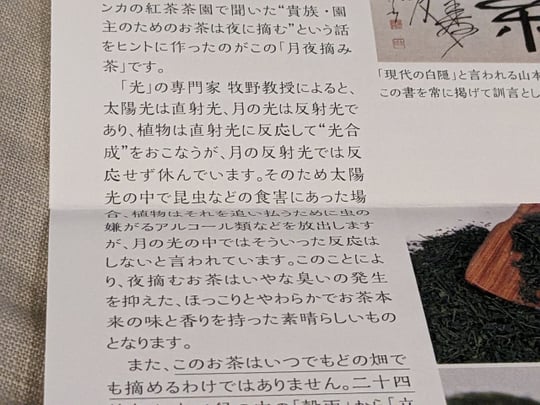 ンカの紅茶茶園で聞いた“貴族・園
主のためのお茶は夜に摘む”という話
をヒントに作ったのがこの「月夜摘み
茶」です。
「光」の専門家 牧野教授によると、
太陽光は直射光、月の光は反射光で
あり、植物は直射光に反応して“光合
成”をおこなうが、月の反射光では反
応せず休んでいます。そのため太陽
光の中で昆虫などの食害にあった場
合、植物はそれを追い払うために虫の
嫌がるアルコール類などを放出します
が、月の光の中ではそういった反応は
しないと言われています。このことによ
り、夜摘むお茶はいやな臭いの発生
を抑えた、ほっこりとやわらかでお茶本
来の味と香りを持った素晴らしいもの
となります。
また、このお茶はいつでもどの畑で
も摘めるわけではありません。二十四
「現代の白隠」と言われる山本
この書を常に掲げて訓言とし